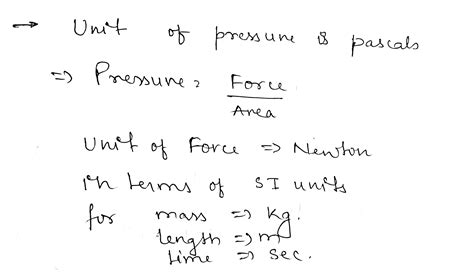 → Unit of pressure is pascals
=> Pressure = Force
Area
Unit of Force => Newton
in terms of SI units
for mass => kg.
length => m
time => sec.